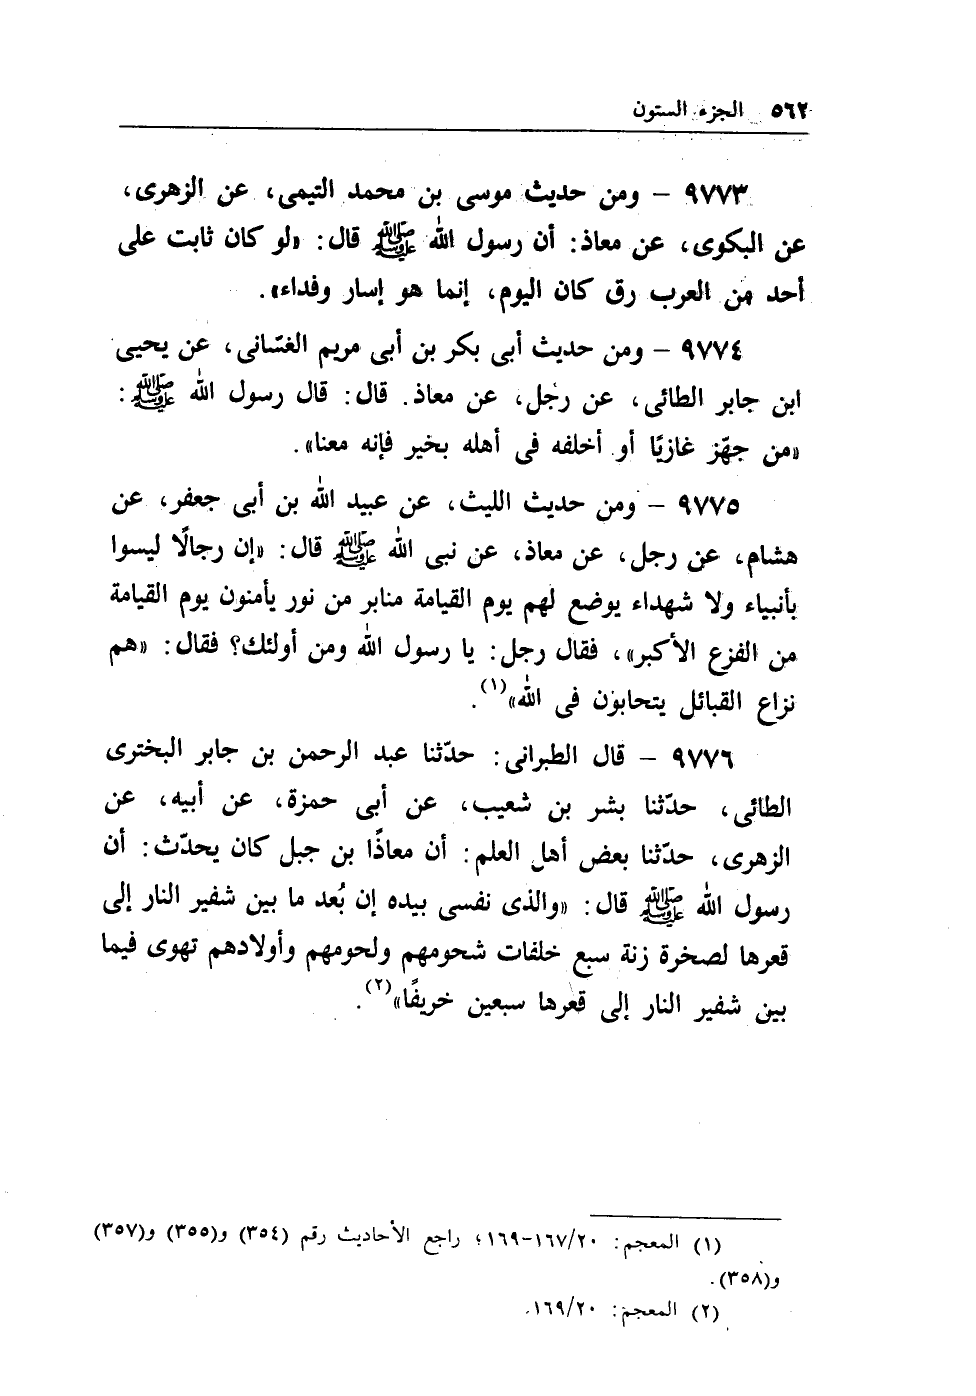 ٥٦٢ الجزء الستون
٩٧٧٣ – ومن حديث موسى بن محمد التيمى، عن الزهرى،
عن البكوى، عن معاذ: أن رسول الله ﷺ قال: «لو كان ثابت على
أحد من العرب رق كان اليوم، إنما هو إسار وفداء».
٩٧٧٤ – ومن حديث أبى بكر بن أبى مريم الغسّانى، عن يحيى
ابن جابر الطائى، عن رجل، عن معاذ. قال: قال رسول الله ﷺ:
«من جهّز غازيًا أو أخلفه فى أهله بخير فإنه معنا».
٩٧٧٥ – ومن حديث الليث، عن عبيد الله بن أبى جعفر، عن
هشام، عن رجل، عن معاذ، عن نبى الله ﷺ قال: «إن رجالًا ليسوا
بأنبياء ولا شهداء يوضع لهم يوم القيامة منابر من نور يأمنون يوم القيامة
من الفزع الأكبر»، فقال رجل: يا رسول الله ومن أولئك؟ فقال: «هم
نزاع القبائل يتحابون فى الله»(١).
٩٧٧٦ – قال الطبرانى: حدّثنا عبد الرحمن بن جابر البخترى
الطائى، حدّثنا بشر بن شعيب، عن أبى حمزة، عن أبيه، عن
الزهرى، حدّثنا بعض أهل العلم: أن معاذًا بن جبل كان يحدّث: أن
رسول الله ﷺ قال: «والذى نفسى بيده إن بُعد ما بين شفير النار إلى
قعرها لصخرة زنة سبع خلفات شحومهم ولحومهم وأولادهم تهوى فيما
بين شفير النار إلى قعرها سبعين خريفًا»(٢).
(١) المعجم: ١٦٧/٢٠-١٦٩؛ راجع الأحاديث رقم (٣٥٤) و(٣٥٥) و(٣٥٧)
و(٣٥٨).
(٢) المعجم: ١٦٩/٢٠.